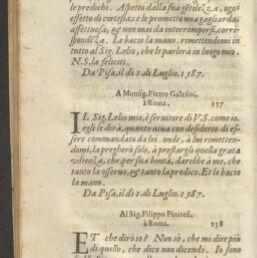 le predichi. Aspetto dalla sua gẽtilezza, ogni
effetto di cortesia, e le prometto una gagliarda,
affettuosa, & non mai da interrompersi, corri-
spondẽza. Le bacio la mano. rimettendomi in
tutto al Sig. Lelio, che le parlerà in luogo mio.
N.S. la feliciti.
Da Pisa, il dì 1. di Luglio. 1587.
A Monsig. Pietro
à Roma. 157
IL Sig. Lelio mio, è servitore di V.S. come io.
egli le dirà, quanto viva con desiderio di es-
sere commandato da lei. onde, à lui rimetten-
domi, la pregherò solo, à prestargli quella grata
udienza, che, per sua bontà, darebbe à me, che
tanto la osservo, & tanto la predico. Et le bacio
la mano.
Da Pisa, il dì 1. di Luglio. 1587.
Al Sig. Filippo
à Roma. 158
ET che dirò io? Non sò, che mi dire più
di quello, che dico non dicendo. Io sono